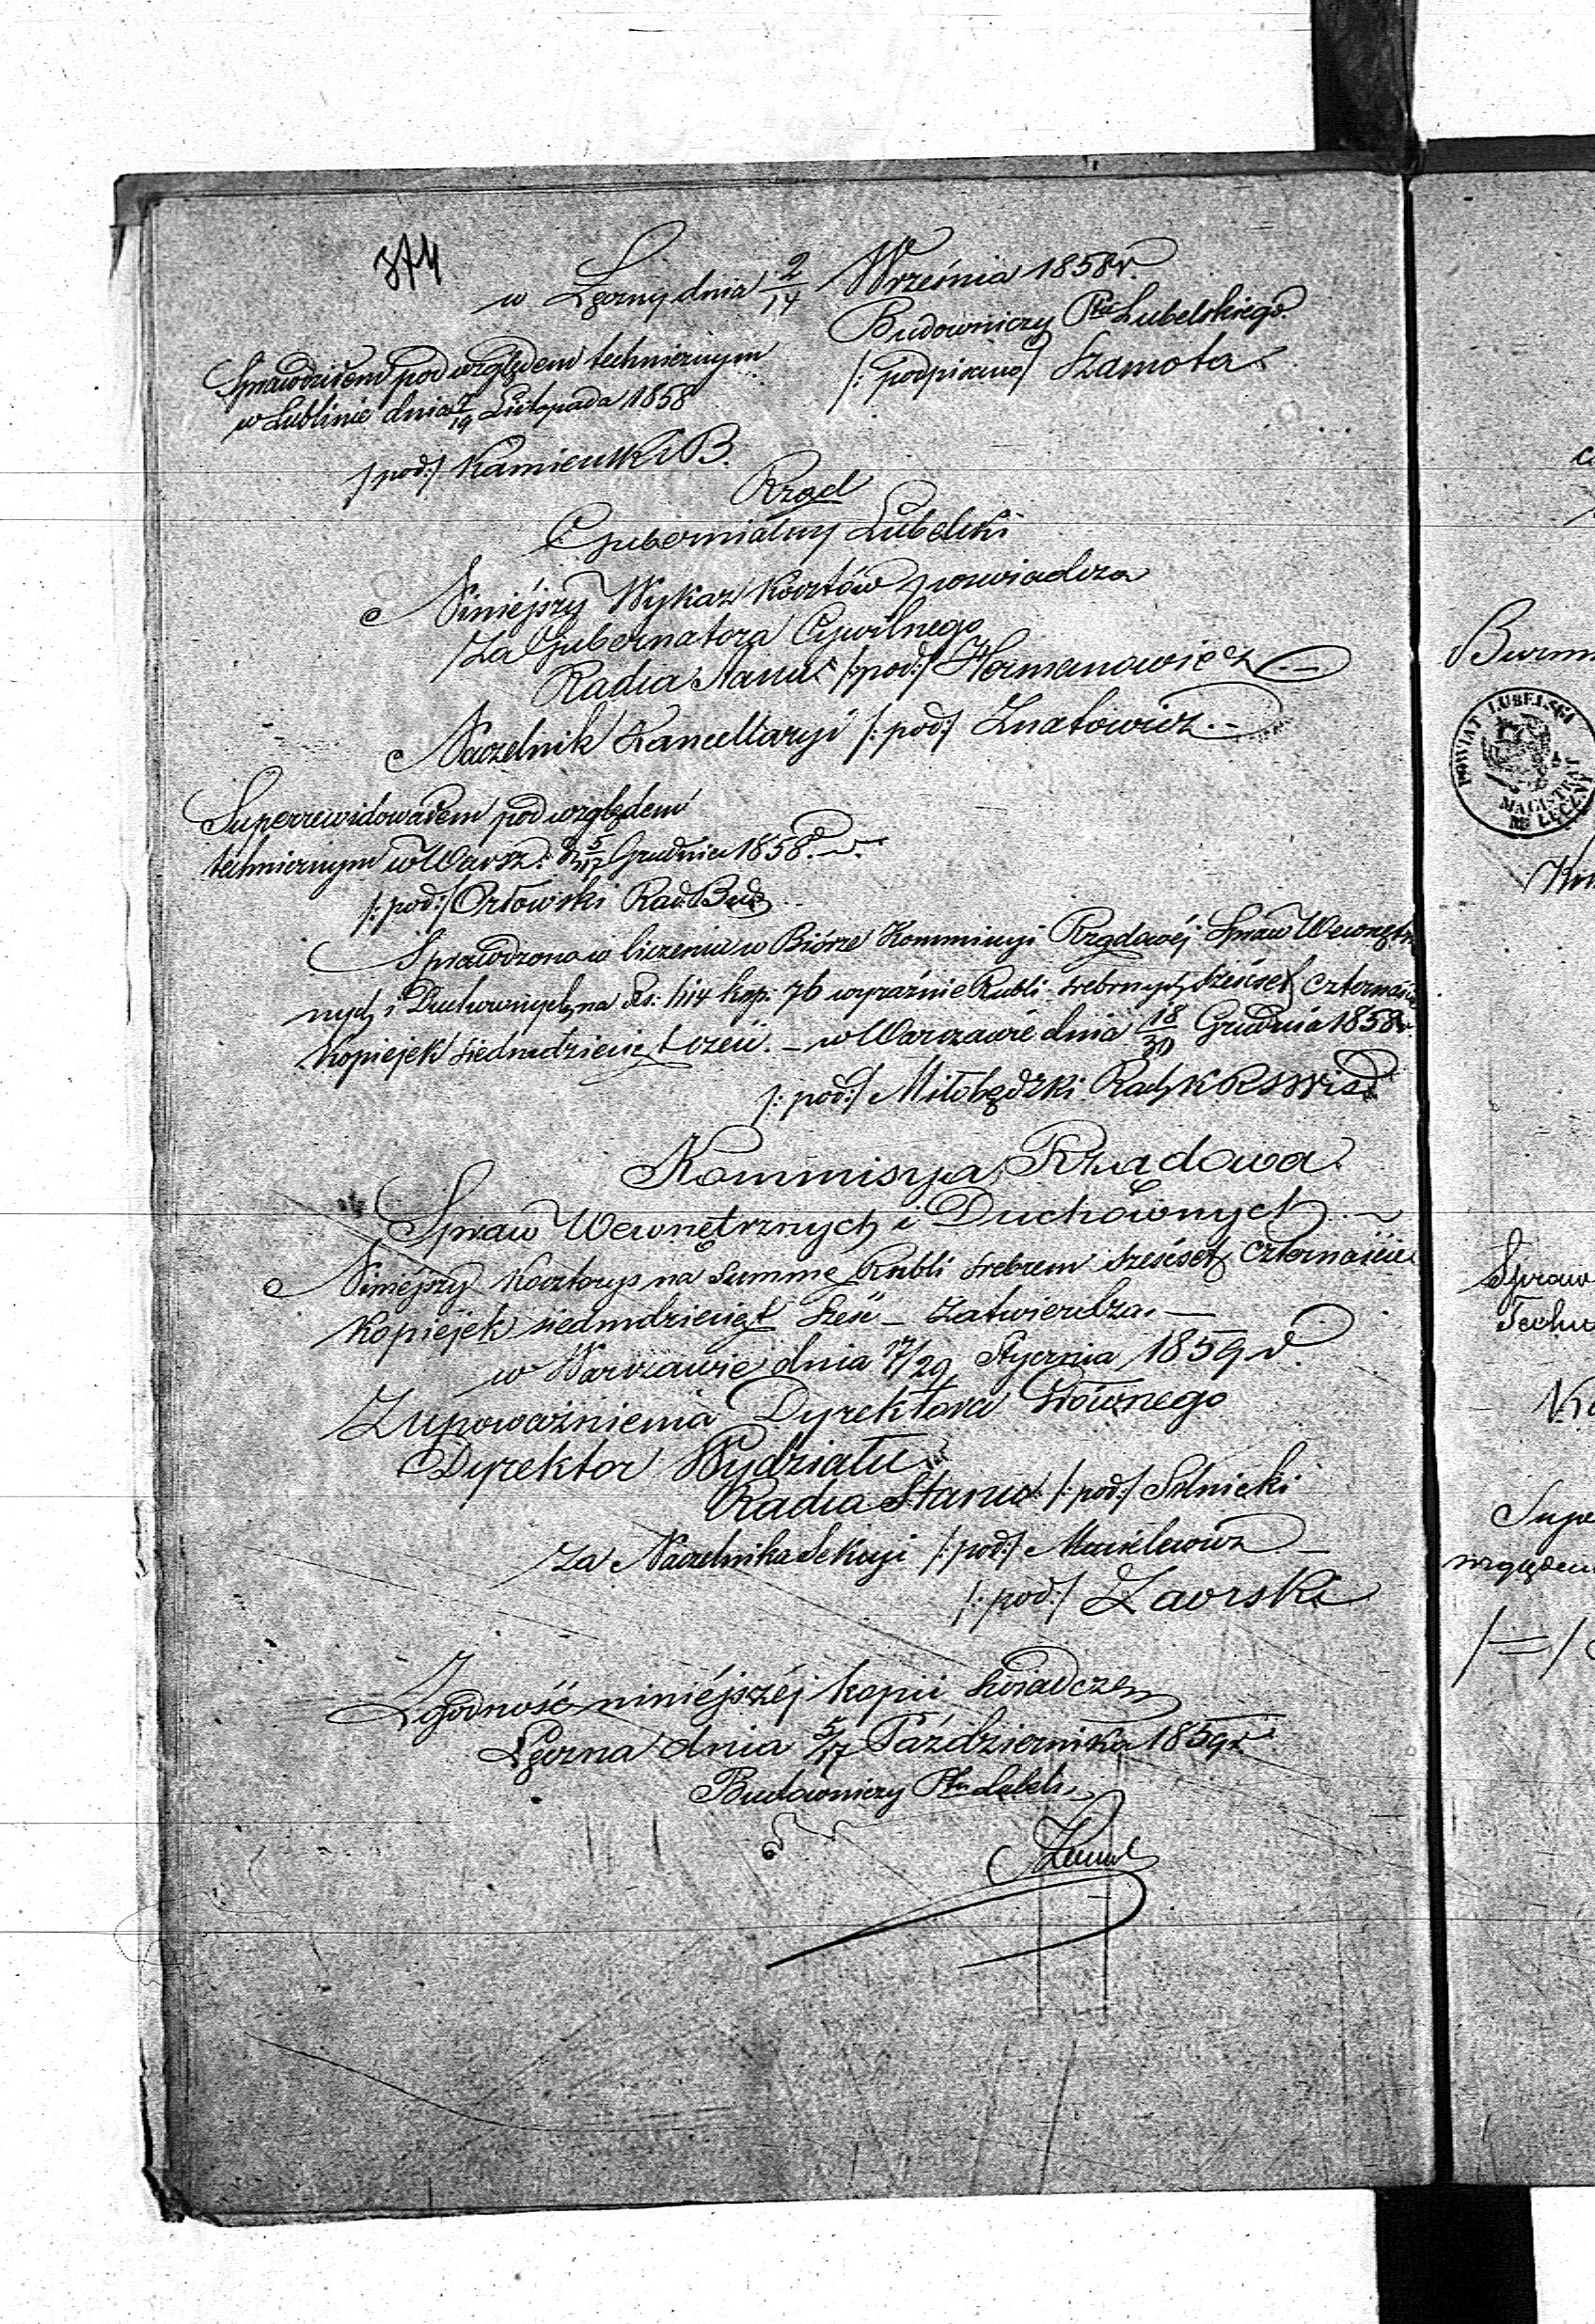 374
w Łęczny dnia 2/14 Września 1858 r.
Budowniczy Ptu Lubelskiego
/: podpisano/ Szamota
Sprawdziłem pod względem technicznym
w Lublinie dnia 7/19 Listopada 1858
/:pod:/ Kamieński B.
Rząd
Gubernialny Lubelski
Niniejszy Wykaz Kosztów poświadcza
Za Gubernatora Cywilnego
Radca Stanu /:pod:/ Hermanowicz
Naczelnik Kancellaryi /:pod:/ Znatowicz
Superrewidowałem pod względem
technicznym w Warsz: d 5/17 Grudnia 1858 r.
/:pod:/ Orłowski Rad. Bud.
Sprawdzono w liczeniu w Biórze Kommissyi Rządowéj Spraw Wewnętrz
nych i Duchownych na Rs: 614 kop: 76 wyraźnie Rubli srebrnych sześćset czternaście
Kopiejek siedmdziesiąt sześć. - w Warszawie dnia 18/30 Grudnia 1858 r.
/:pod:/ Miłobędzki Rad. KRSWiD
Kommisya Rządowa
Spraw Wewnętrznych i Duchownych
Niniejszy Kosztorys na Summę Rubli srebrem sześćset czternaście
Kopiejek siedmdziesiąt sześć - zatwierdza. -
w Warszawie dnia 17/29 Stycznia 1859 r.
Z upoważnienia Dyrektora Głównego
Dyrektor Wydziału
Radca Stanu /:pod:/ Solnicki
Za Naczelnika Sekcyi /:pod:/
/:pod:/ Zaorski
Zgodność niniéjszéj kopii świadczem
Łęczna dnia 5/17 Października 1859 r.
Budowniczy Ptu Lubels.
POWIAT LUBELSKI
MAGISTRAT
Burm
Spraw
Techn
Supe
względem